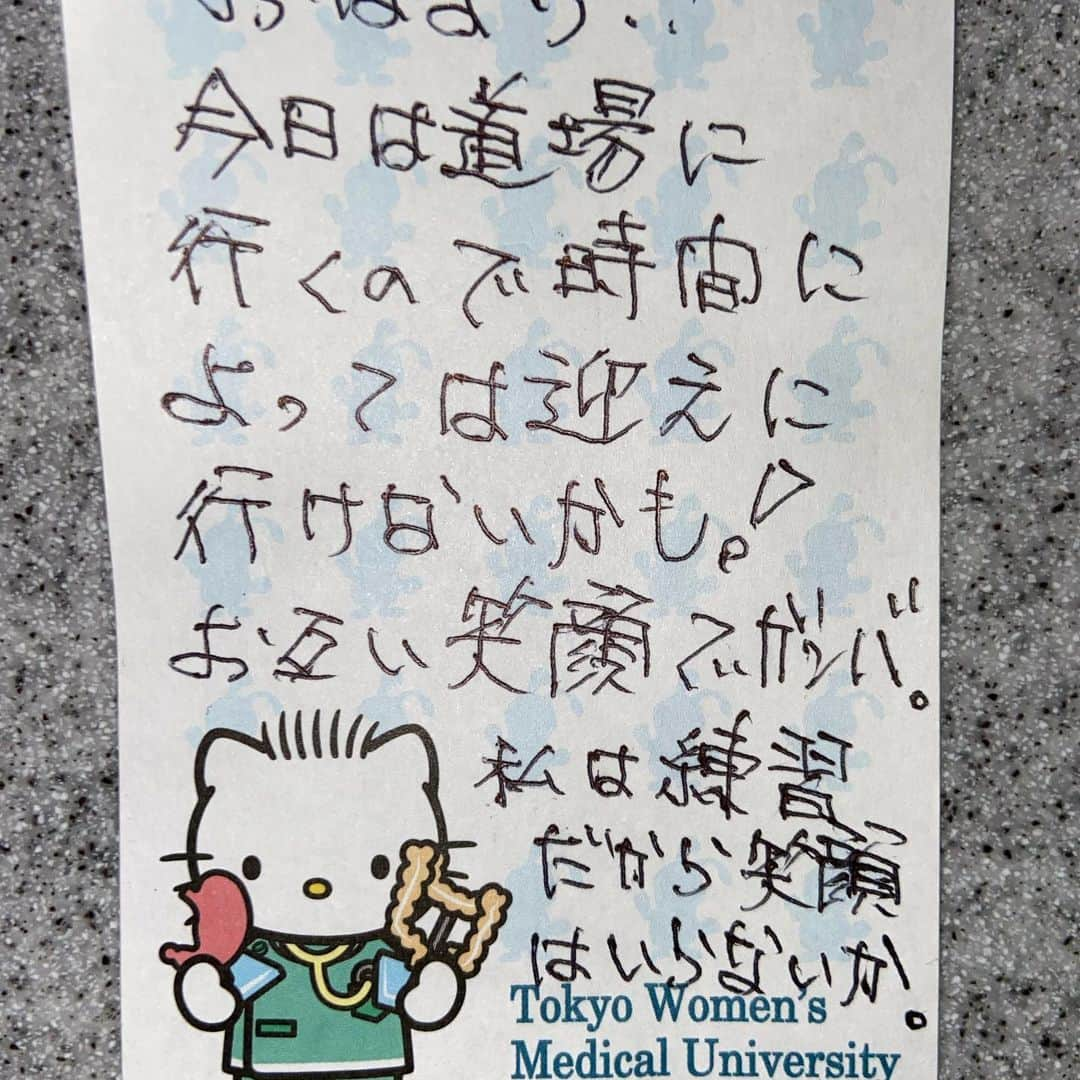 おはよう!!
今日は道場に
行くので時間に
よっては迎えに
行けないかも。!
お互い笑顔でガンバ。
私は練習
だから笑顔
はいらないか。
Tokyo Women's
Medical University